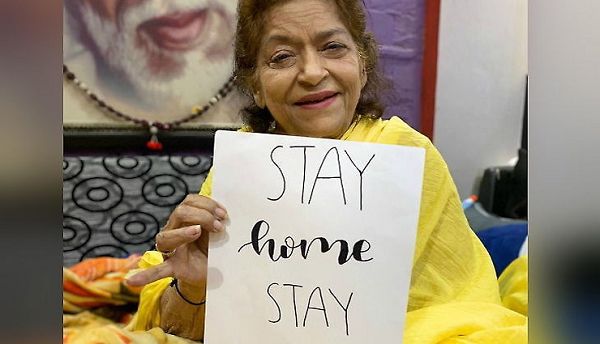 STAY
home
STAY